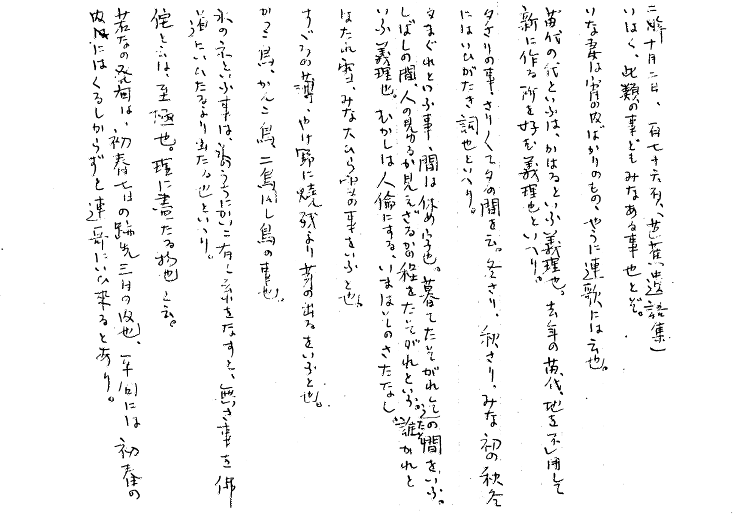 二時十月二日、一百七十六頁、芭蕉遺語集
いはく、此類の事どもみなある事也とぞ。
いな妻は宵の内ばかりのもの、やうに連歌には云也。
苗代の代といふは、かはるといふ義理也。去年の苗代、地を不用して
新に作る所を好む義理也といへり。
夕ざりの事、さりくて夕の間を云。冬さり、秋さり、みな初の秋冬
にはいひがたき詞也といへり。
夕まぐれといふ事、間は休め字也。暮てたそがれ迄の間をいふ。
しばしの間、人の見ゆるか見えざるかの程をたそがれといふ。誰かれと
いふ義理也。むかしは人倫にする、いまはそのさたなし。
はたれ雪、みな大ひら雪の事をいふと也。
すぐろの薄、やけ野に焼残より芽の出るをいふと也。
かつこ鳥、かんこ鳥、二鳥ハし鳥の事也。
水の衣といふ事は、なす事、無き事を佛
道といひたるより出たる也といへり。
侘と云は、至極也。理に盡たる物也と云。
若なの発句は、初春七日の跡先三日の内也、平句には初春の
内にはくるしからずと連哥にいひ来るとあり。